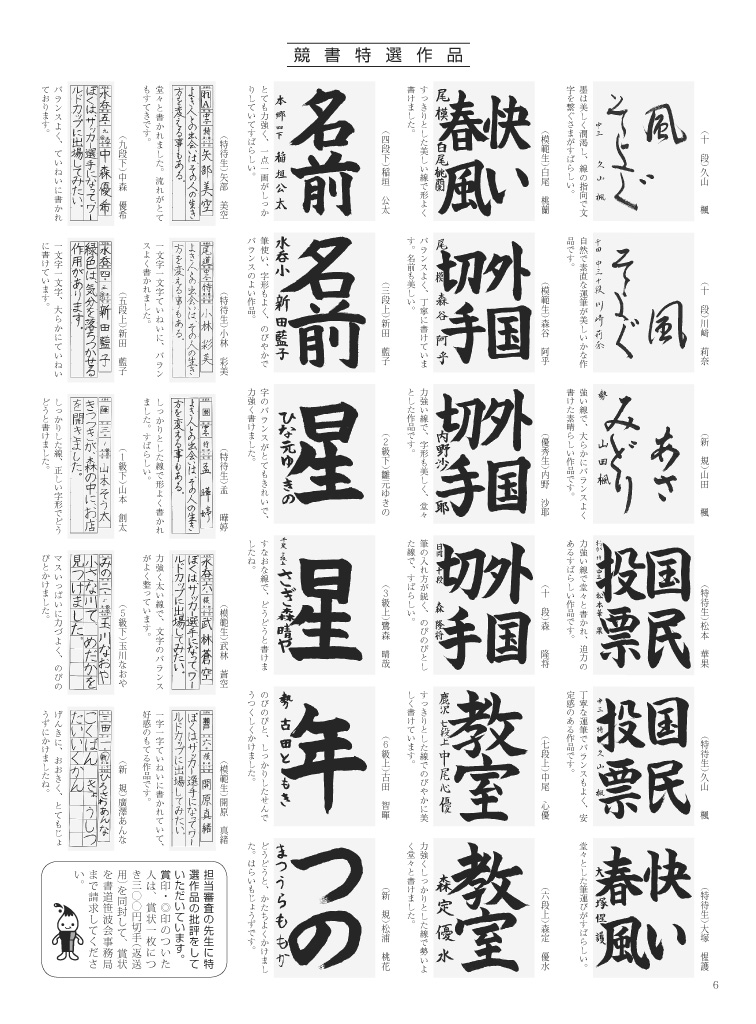 競書特選作品
(十　段)久山　楓
風
そよぐ
中三　久山　楓
墨は美しく潤渇し、線の指向で文
字を繋ぐさまがすばらしい。
(十　段)川﨑　莉奈
風
そよぐ
中三十段　川﨑莉奈
自然で素直な運筆が美しいかな作
品です。
(新　規)山田　楓
あさ
みどり
勢　山田楓
強い線で、大らかにバランスよく
書けた素晴らしい作品です。
(特待生)松本　華果
国民
投票
松本華果
力強い線で堂々と書かれ、迫力の
あるすばらしい作品です。
(特待生)久山　楓
国民
投票
中三　特待　久山　楓
丁寧な運筆でバランスもよく、安
定感のある作品です。
(特待生)大塚　惺護
快い
春風
大塚惺護
堂々とした筆運びがすばらしい。
(模範生)白尾　桃蘭
快い
春風
尾　模　白尾桃蘭
すっきりとした美しい線で形よく
書けました。
(模範生)森谷　阿乎
外国
切手
尾　模　森谷　阿乎
バランスよく、丁寧に書けていま
す。名前も美しい。
(優秀生)内野　沙耶
外国
切手
内野沙耶
力強い線で、字形も美しく、堂々
とした作品です。
(十　段)森　隆将
外国
切手
十段　森　隆将
筆の入れ方が鋭く、のびのびとし
た線で、すばらしい。
(七段上)中尾　心優
教室
鹿沢　七段上　中尾心優
すっきりとした線でのびやかに美
しく書けています。
(六段上)森定　優水
教室
森定優水
力強くしっかりとした線で勢いよ
く堂々と書けました。
(四段下)稲垣　公太
名前
本郷　四下　稲垣公太
とても力強く、一点一画がしっか
りしていてすばらしい。
(三段上)新田　藍子
名前
水呑小　新田藍子
筆使い、字形もよく、のびやかで
バランスのよい作品。
(2級下)雛元ゆきの
星
ひな元ゆきの
字のバランスがとてもきれいで、
力強く書けました。
(3級上)鷺森　晴哉
星
さぎ森晴や
すなおな線で、どうどうと書けま
したね。
(6級上)古田　智暉
年
勢　古田ともき
のびのびと、しっかりしたせんで
うつくしくかけました。
(新　規)松浦　桃花
つの
まつうらももか
どうどうと、かたちよくかけまし
た。はらいもじょうずです。
(特待生)矢部　美空
れA　中二　特　矢部美空
よき人との出会いは、その人の生き
方を変える事もある。
堂々と書かれました。流れがとて
もすてきです。
(特待生)小林　彩美
尾道　中三　特　小林彩美
よき人との出会いは、その人の生き
方を変える事もある。
一文字一文字ていねいに、バラン
スよく書かれました。
(特待生)孟　曄婷
孟　曄婷
よき人との出会いは、その人の生き
方を変える事もある。
しっかりとした線で形よく書かれ
ました。すばらしい。
(模範生)武林　蒼空
水呑　六　模　武林蒼空
ぼくはサッカー選手になってワー
ルドカップに出場してみたい。
力強く太い線で、文字のバランス
がよく整っています。
(模範生)開原　真緒
六　模　開原真緒
ぼくはサッカー選手になってワー
ルドカップに出場してみたい。
一字一字ていねいに書かれていて、
好感のもてる作品です。
(九段下)中森　優希
水呑　五　九　中森優希
ぼくはサッカー選手になってワー
ルドカップに出場してみたい。
バランスよく、ていねいに書かれ
ております。
(五段上)新田　藍子
水呑　四　新田藍子
緑色は気分を落ちつかせる
作用があります。
一文字一文字、大らかにていねい
に書けています。
(1級下)山本　創太
山本そう太
きつつきが、森の中にお店
を開きました。
しっかりした線、正しい字形でどう
どうと書けました。
(5級下)玉川なおや
みの　二　玉川なおや
小さな川で、めだかを
見つけました。
マスいっぱいに力づよく、のびの
びとかけました。
(新　規)廣澤あんな
三田　一　新　ひろさわあんな
こくばん　きょうしつ
たいいくかん
げんきに、おおきく、とてもじょ
うずにかけましたね。
担当審査の先生に特
選作品の批評をして
いただいています。
賞印・◎印のついた
人は、賞状一枚につ
き三〇〇円切手(返送
用)を同封して、賞状
を書道笹波会事務局
まで請求してくださ
い。
6